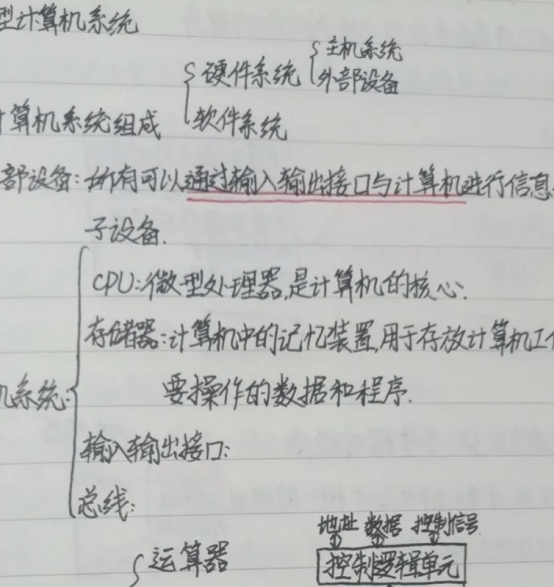 型计算机系统
主机系统
硬件系统
外部设备
计算机系统组成
软件系统
部设备:所有可以通过输入输出接口与计算机进行信息
子设备.
CPU:微型处理器,是计算机的核心.
存储器:计算机中的记忆装置,用于存放计算机工作
要操作的数据和程序.
机系统:
输入输出接口:
总线:
地址 数据 控制信号
运算器
控制逻辑单元